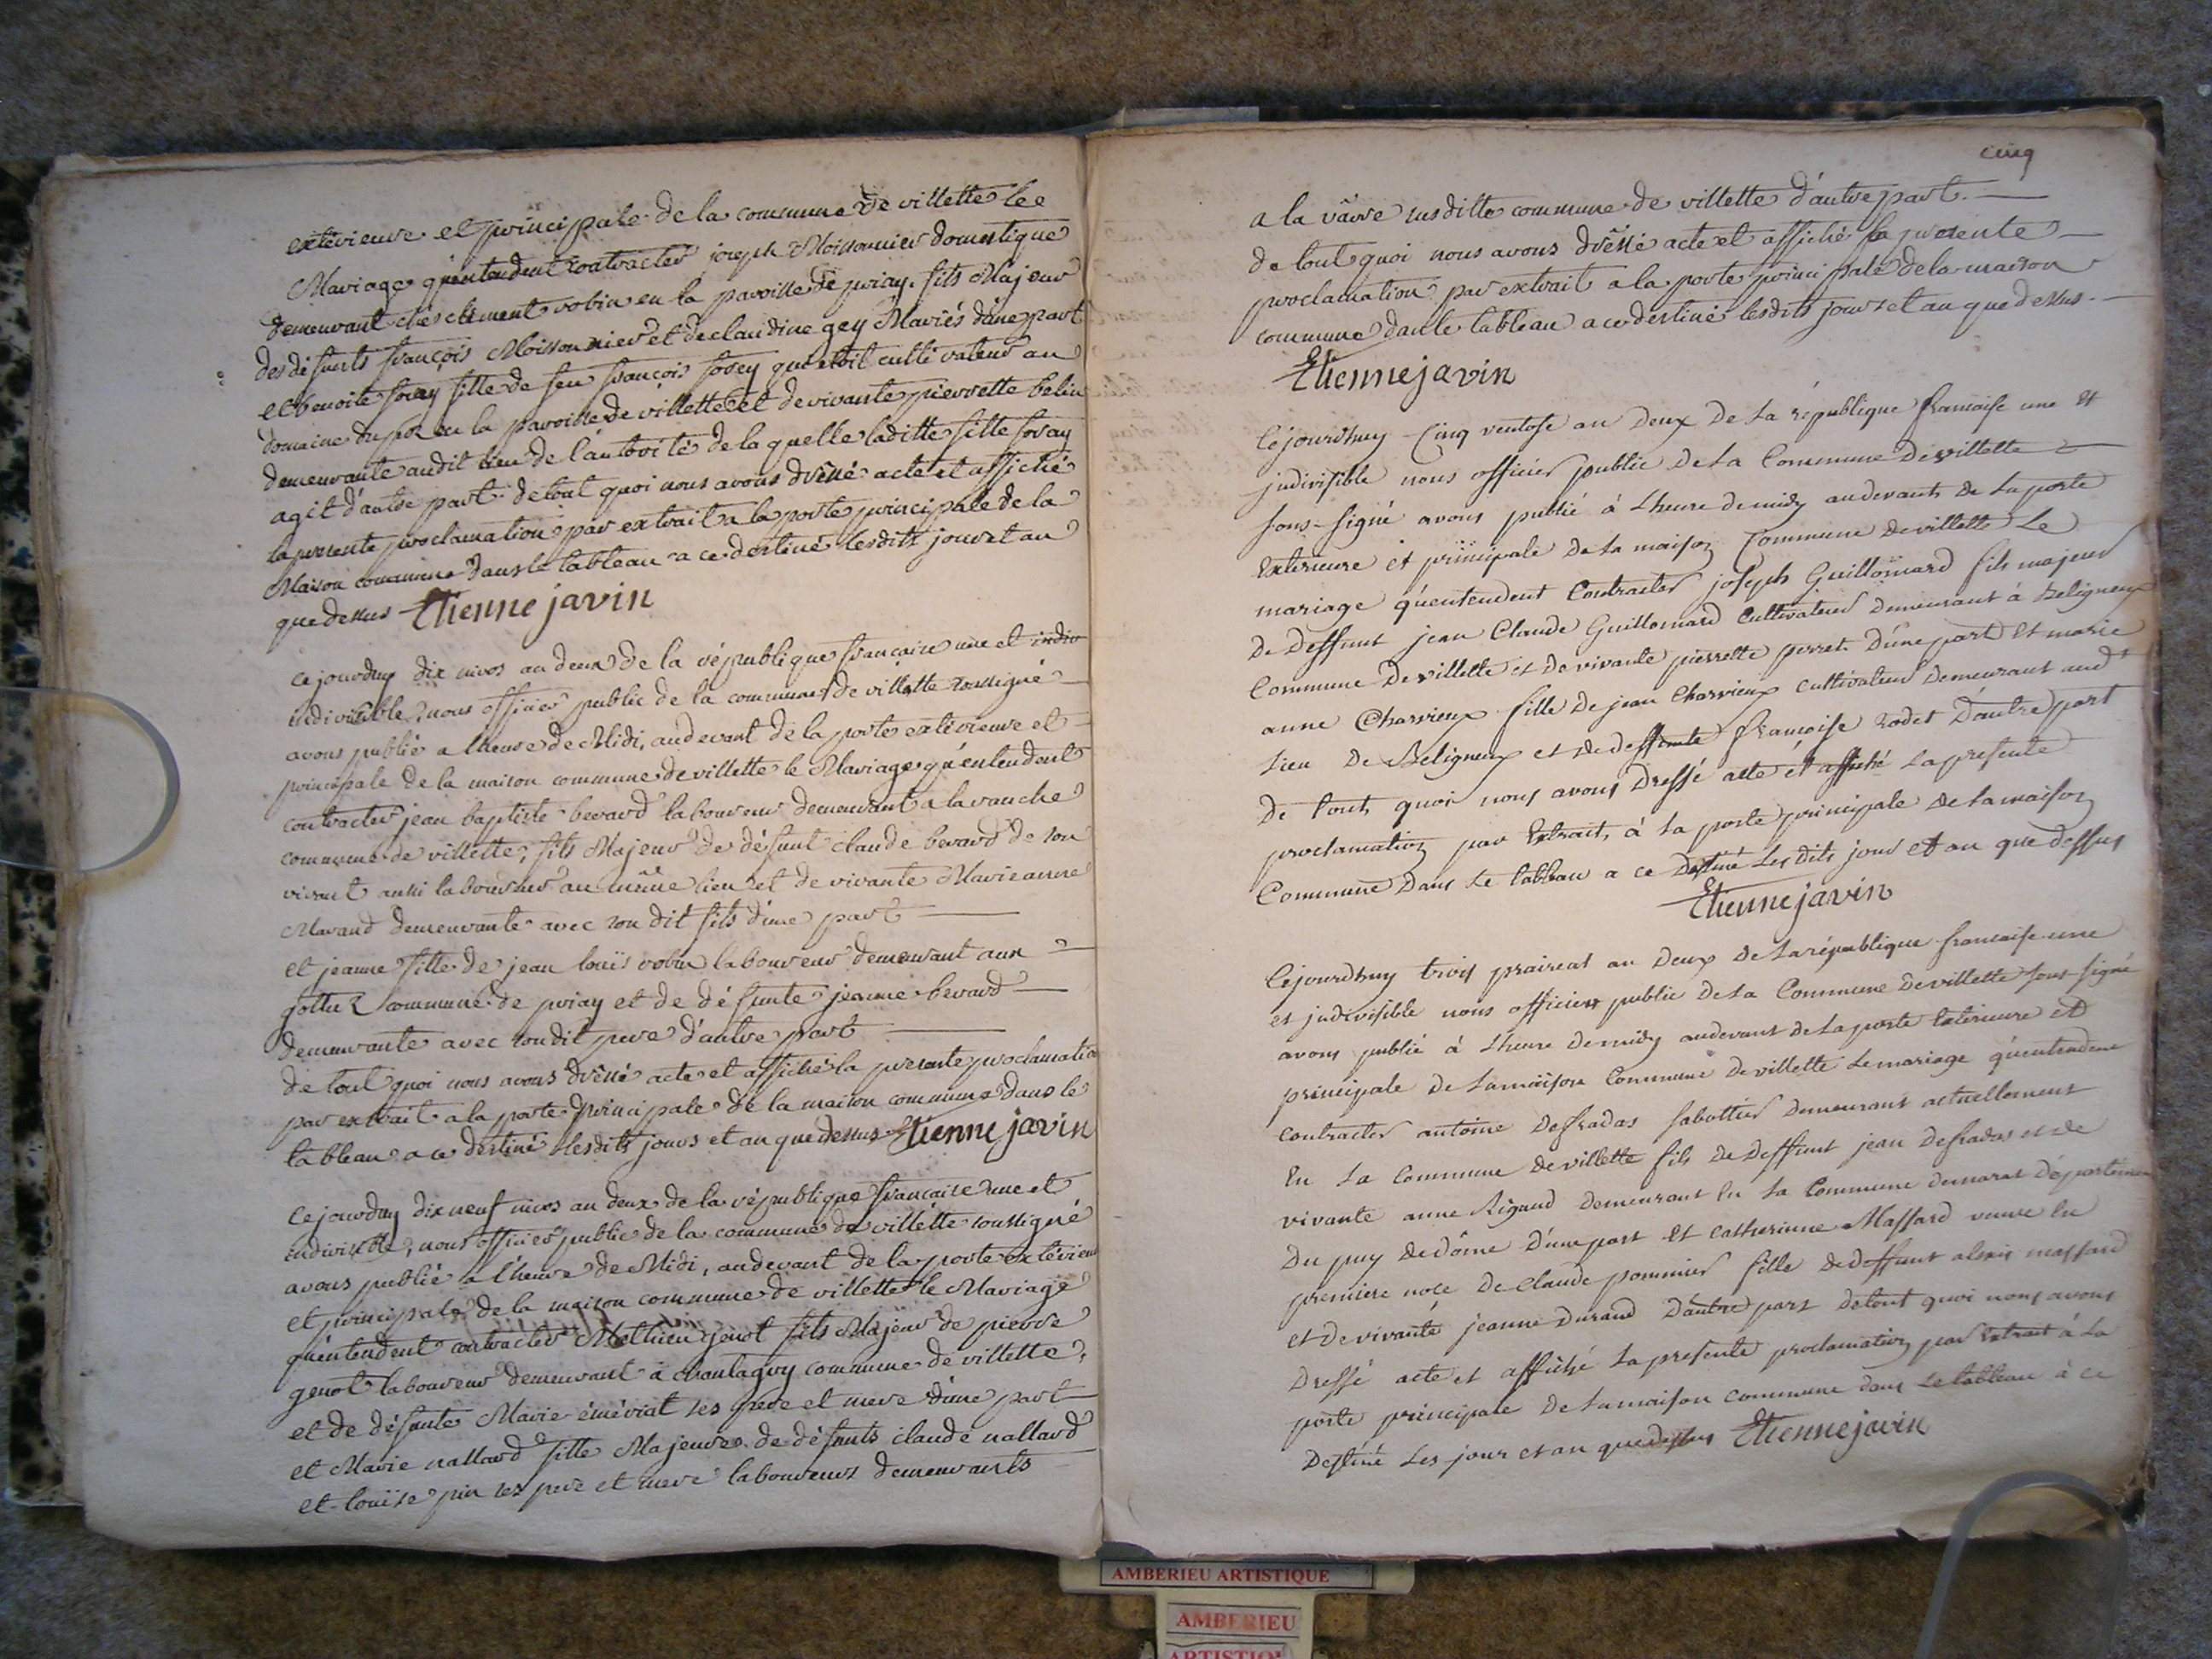 extérieure et principale de la commune de villette lee
Mariage qu'entendent contracter joseph Moissonnier domestique
demeurant chés clement robin en la paroisse de priay. fils Majeur
des défunts francois Moissonnier et de claudine gey Mariés d'une part
et benoite foray fille de feu francois foray qui etoit cultivateur au
domaine du en la paroisse de villette et de vivante pierrette belin
demeurante audit lieu de l'autorité de la quelle laditte fille foray
agit d'autre part. de tout quoi nous avons dréssé acte et affiché
la presente proclamation par extrait a la porte principale de la
Maison commune dans le tableau a ce destiné lesdits jour et an
que dessus Etienne javin
ce jourduy dix nivos an deux de la république francaise une et indiv
indivisible, nous officier public de la commune de villette soussigné
avons publié a lheure de Midi, audevant de la porte extérieure et
principale de la maison commune de villette le Mariage qu'entendent
contracter jean baptiste berard laboureur demeurant a la ranche
commune de villette, fils Majeur de défunt claude berard de son
vivant aussi laboureur au même lieu et de vivante Marie anne
Marand demeurante avec son dit fils d'une part
et jeanne fille de jean louis robin laboureur demeurant aux
gottez commune de priay et de défunte jeanne berard
demeurante avec sondit pere d'autre part
de tout quoi nous avons dréssé acte et affiché la presente proclamatio
par extrait a la porte principale de la maison commune dans le
tableau a ce destiné lesdits jours et an que dessus Etienne javin
Ce jourduy dix neuf nivos an deux de la république francaise une et
indivisible, nous officier public de la commune de villette soussigné
avons publié a l'heure de Midi, audevant de la porte extérieu
et principale de la maison commune de villette le Mariage
qu'entendent contracter Mathieu genot fils Majeur de pierre
genot laboureur demeurant à chantagry commune de villette,
et de défunte Marie émériat ses pere et mere d'une part
et Marie nallard fille Majeure de défunts claude nallard
et louise pin ses pere et mere laboureurs demeurants
cinq
a la vâvre susditte commune de villette d'autre part.
de tout quoi nous avons dréssé acte et affiché la presente
proclamation par extrait a la porte principale de la maison
commune dans le tableau a ce destiné lesdits jours et an que dessus.
Etienne javin
Cejourdhuy Cinq ventose an Deux De La république francoise une et
judivisible nous officier public De La Commune De villette
sous-signé avons publié à L'heure de midy audevant de La porte
Exterieure et principale De La maison Commune de villette Le
mariage qu'entendent Contracter joseph Guillomard fils majeur
De Deffunt jean Claude Guillomard Cultivateur Demeurant à Beligneux
Commune De villette et De vivante pierrette perret D'une part et marie
anne Charvieux fille De jean Charvieux cultivateur Demeurant aud^t
Lieu De Beligneux et de deffunte francoise rodet D'autre part
De tout quoi nous avons Dressé acte et affiché La presente
proclamation par Extrait à La porte principale De La maison
Commune Dans Le tableau a ce Destiné Les dits jour et an que dessus
Etienne javin
Cejourdhuy trois prairial an Deux de La république francoise une
et judivisible nous officier public De La Commune De villette sous signé
avons publié à L'heure De midy audevant de La porte Exterieure et
principale De La maison Commune De villette Le mariage qu'entendent
contracter antoine Desfradas sabottier Demeurant actuellement
En La Commune de villette fils De Deffunt jean Desfradas et de
vivante anne Rigaud Demeurant En La Commune Demarat Départemen
Du puy De dôme D'une part Et Catherinne Massard veuve En
premiere noce De Claude pommier fille De deffunt alexis massard
et De vivante jeanne Durand D'autre part De tout quoi nous avons
Dressé acte et affiché La presente proclamation par Extrait à La
porte principale De La maison commune dans Le tableau à ce
Destiné Les jour et an que dessus Etienne javin
AMBERIEU ARTISTIQUE
AMBERIEU
ARTISTIQ